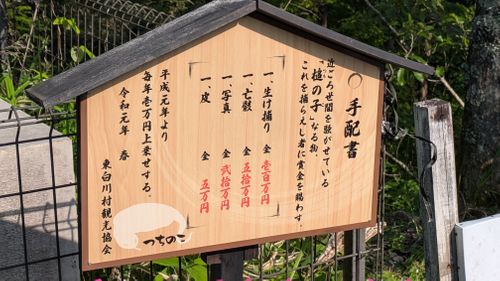 手配書
近ごろ世間を騒がせている
「槌の子」なる物、
これを捕らえし者に賞金を賜わす。
一、生け捕り 金 壱百万円
一、亡骸 金 五拾万円
一、写真 金 弐拾万円
一、皮 金 五万円
平成元年より
毎年壱万円上乗せする。
令和元年 春
東白川村観光協会
つちのこ